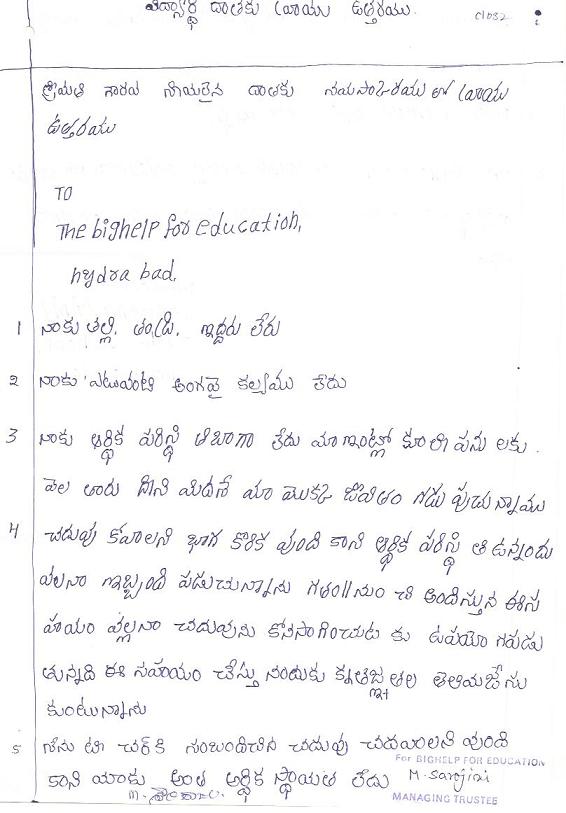 విద్యార్థి దాతకు వ్రాయు ఉత్తరము. c1032
శ్రీమతి గారయ నాయకైన దాతకు నయసాహరయము లో వ్రాయు
ఉత్తరము
TO
The bighelp for education,
hydra bad,
1 నాకు తల్లి, తండ్రి, ఇద్దరు లేరు
2 నాకు ఎటువంటి అంగవై కల్యము లేదు
3 నాకు ఆర్థిక పరిస్థితి బాగా లేదు మా ఇంట్లో కూలి పను లకు.
వెల తారు దీని మిదనే మా మొక్క జీవితం గడు పుచున్నాము
4 చదువు కోవాలని భాగ కోరిక వుంది కాని ఆర్థిక పరిస్థి తి ఉన్నందు
వలనా ఇబ్బంది పడుచున్నాను గతం॥నుం చి అందిస్తున ఈస
హయం వల్లనా చదువును కొనసాగించుట కు ఉపయో గపడు
తున్నది ఈ సహయం చేస్తు నందుకు కృతజ్ఞ తల తెలియజేసు
కుంటున్నాను
5 నేను టి చర్ కి సంబందించిన చదువు చదవాలని వుంది
కాని మాకు అంత ఆర్థిక స్థాయత లేదు
For BIGHELP FOR EDUCATION
M. Sarojini
MANAGING TRUSTEE